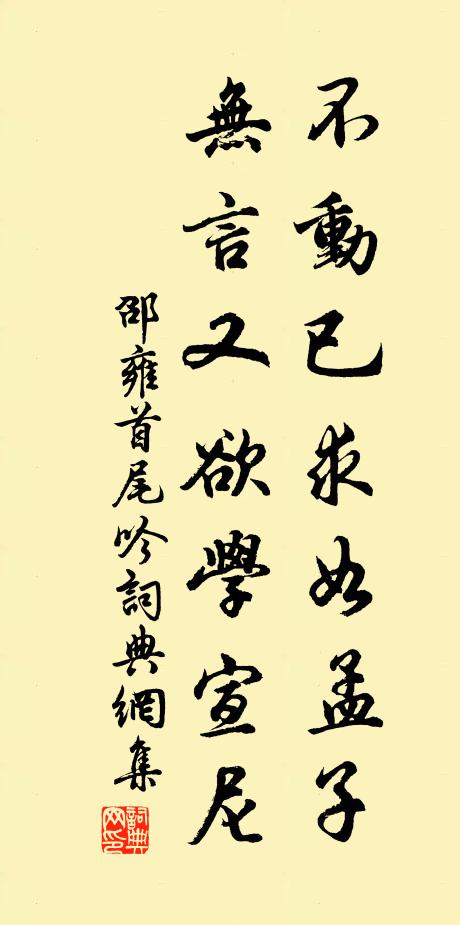 不動已求如孟子
無言又欲學宣尼
邵雍首尾吟詞典網集
詞典网印